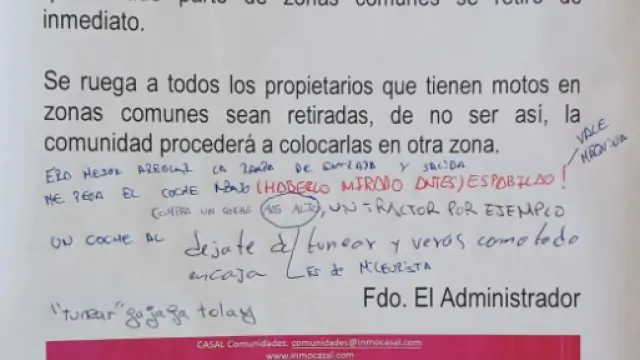 parte de zonas comunes se retire de
inmediato.
Se ruega a todos los propietarios que tienen motos en
zonas comunes sean retiradas, de no ser así, la
comunidad procederá a colocarlas en otra zona.
VALE
MAQUINA
ERA MEJOR ARREGLAR LA RAMPA DE ENTRADA Y SALIDA
ME PEGA EL COCHE ABAJO (HABERLO MIRADO ANTES) ESPABILAO!
COMPRA UN COCHE MAS ALTO, UN TRACTOR POR EJEMPLO
UN COCHE AL
dejate d/ tunear y verás como todo
encaja ES de MILEURISTA
"tunear" gajaga tolay
Fdo. El Administrador
CASAL Comunidades. comunidades@inmocasal.com
www.inmocasal.com